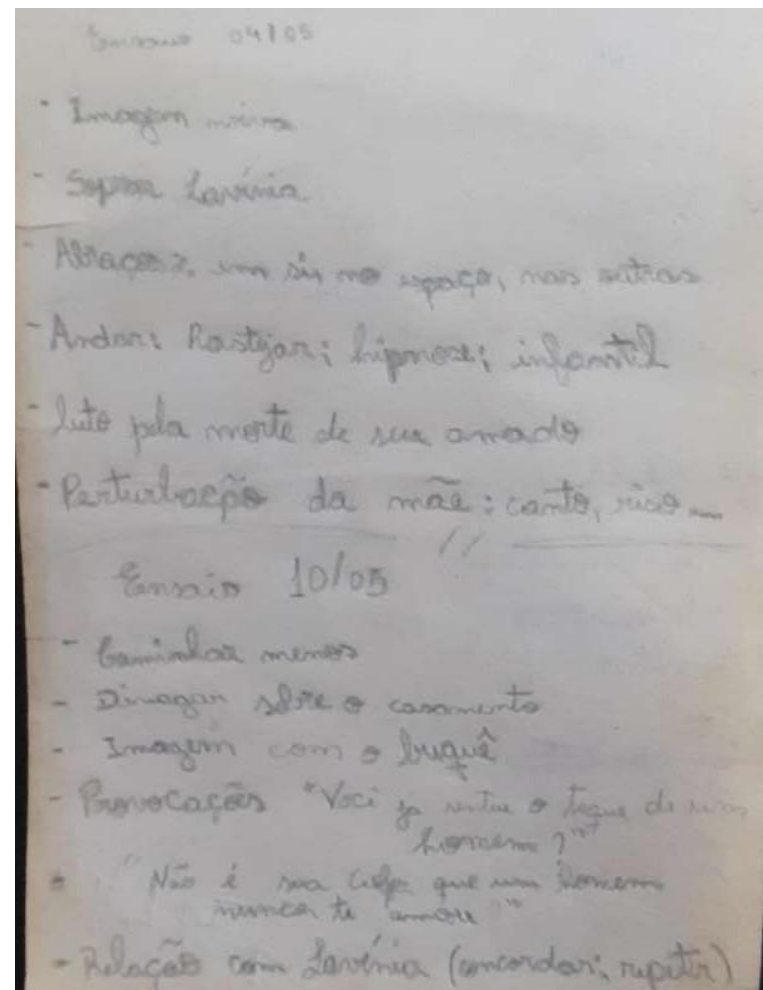 Ensaio 04/05
- Imagem noiva
- Soprar Lavínia
- Abraços, um sir no espaço, nas outras
- Andar: Rastejar; hipnose; infantil
- luto pela morte de seu amado
- Perturbação da mãe: canto, riso...
//
Ensaio 10/05
- Caminhar menos
- Divagar sobre o casamento
- Imagem com o buquê
- Provocações "Você já sentiu o toque de um
homem?"
- "Não é sua culpa que um homem
nunca te amou"
- Relação com Lavínia (concordar; repetir)